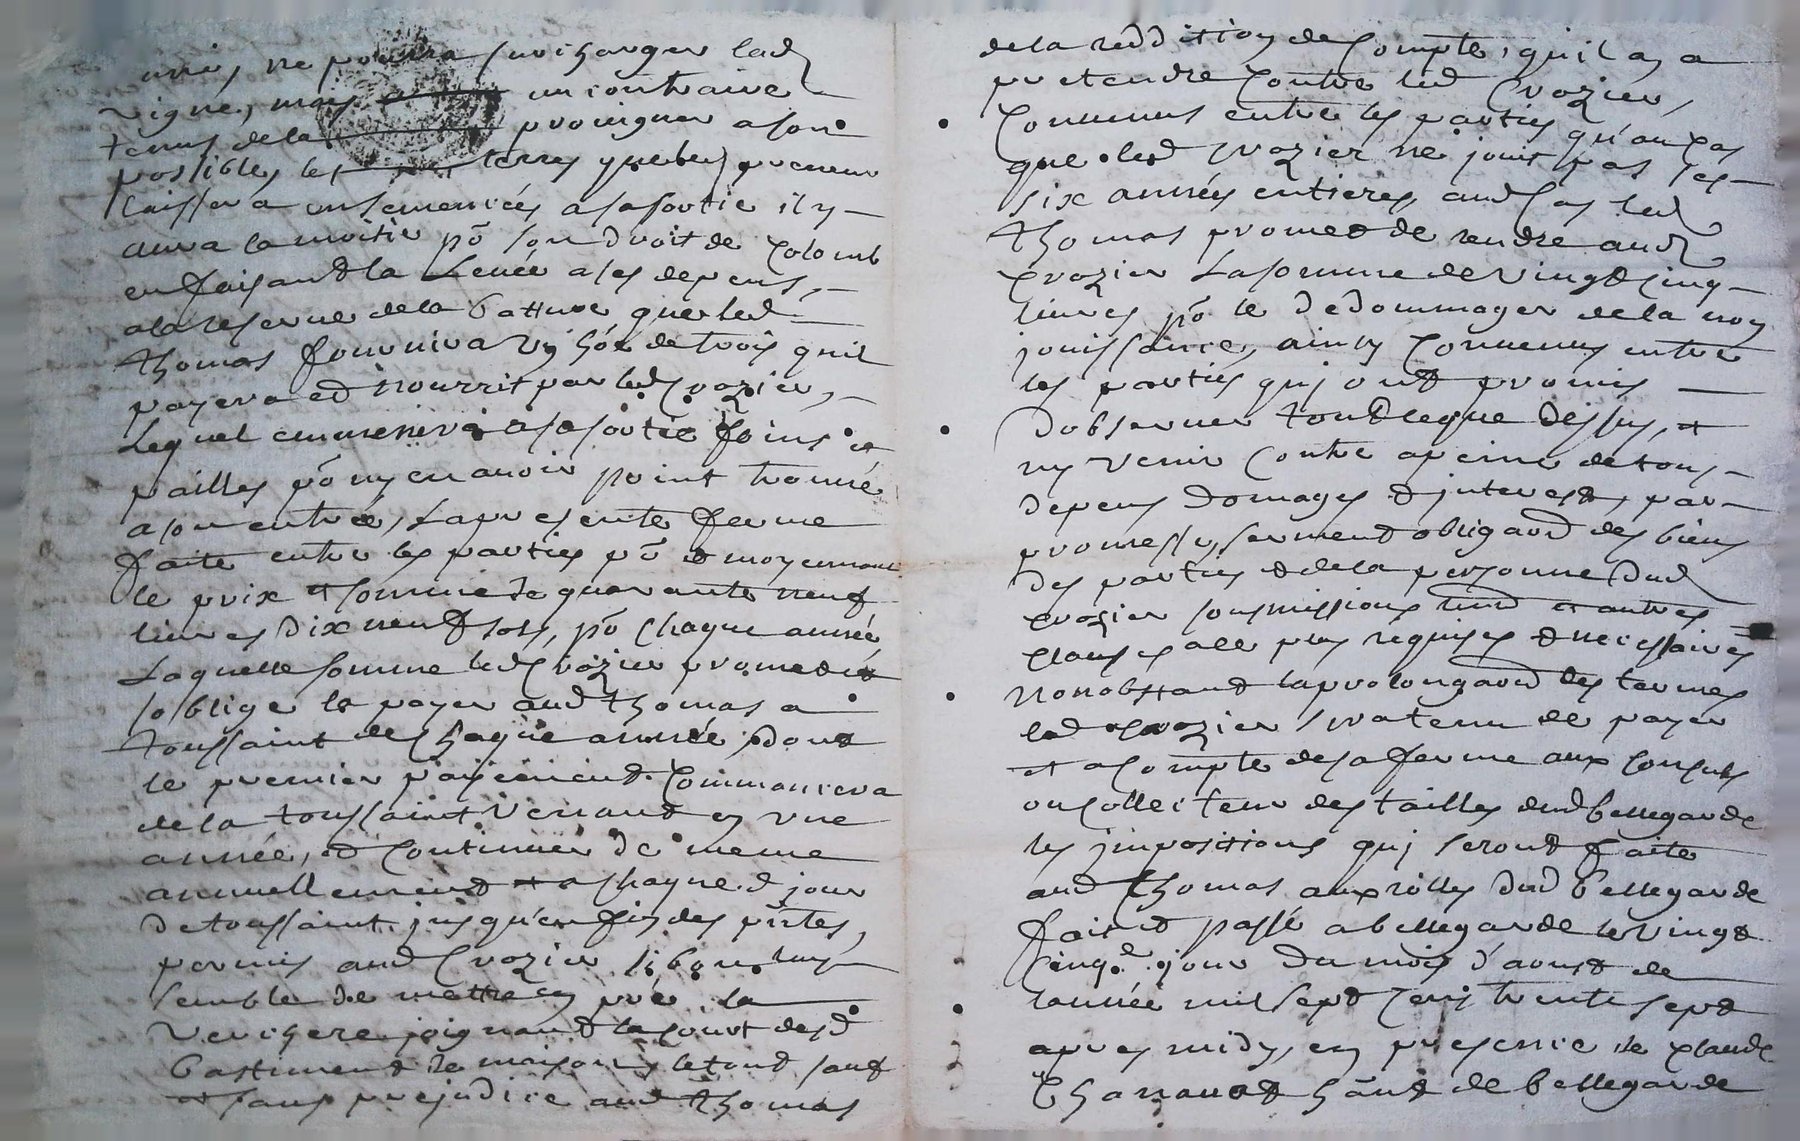 uriers ne pourra surcharger lad
vigne, mais au contraire
tenus de la provigner a son
possibles, les terres que led preneur
laissera ensemencées a sa sortie il y
aura la moitié põ son droit de colomb
en faisand la Levée a ses depens,
a la reserve de la batture que led
thomas fournira de trois quil
payera ed nourrit par led Crozier,
Lequel emmenera a sa sortie foins et
pailles põ ny en avoir point trouvé
a son entrée, La presente ferme
faite entre les parties põ et moyennant
le prix et somme de quarante neuf
livres dix neuf sols, põ chaque année
Laquelle somme led Crozier promed et
soblige de payer aud thomas a
toussaint de chaque année, dont
le premier payemend commancera
de la toussaint venand en une
année, et continuer de meme
annuellemend et a chaque d jour
de toussaint jusqu'en fin des pñtes,
permis aud Crozier si bon luy
semble de mettre en pré la
verchere joignand la court desd
bastimend de maison, le toud sauf
et sans prejudice aud thomas
de la reddition de compte, qu'il y a
pretendre contre led Crozier,
Convenus entre les parties qu'au cas
que led Crozier ne jouit pas les
six années entieres, aud cas led
thomas promed de rendre aud
Crozier La somme de vingd cinq
livres põ le dedommager de la non
jouissance, ainsy convenus entre
les parties quj ond promis
d'observer toud ce que dessus, et
ny venir contre a peine de tous
depens domages et jnterest, par
promesse, sermend obligaõn des biens
des parties et de la personne dud
Crozier soumissions renõn et autres
clauses a ce plus requises et necessaires
Nonobstand la prolongaõn des termes
led Crozier sera tenu de payer
et a compte de sa ferme aux consuls
ou collecteur des tailles dud bellegarde
les jmpositions quj serond faite
aud thomas aux rolles dud bellegarde
faict et passé a bellegarde le vingd
cinq.e jour du mois d'aoust de
l'année mil sepd cens trente sepd
apres midy, en presence de claude
Charraud hãnd de bellegarde